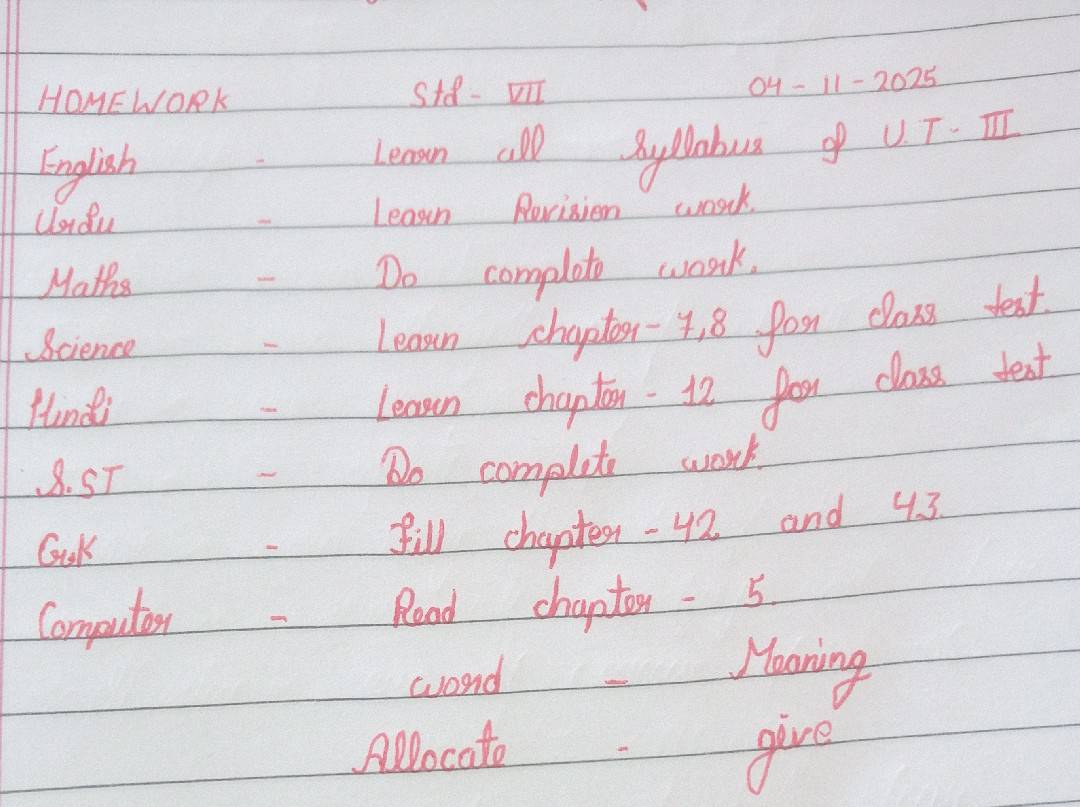 HOMEWORK Std - VII 04 - 11 - 2025
English - Learn all Syllabus of U.T - III
Urdu - Learn Revision work.
Maths - Do complete work.
Science - Learn chapter - 7,8 for class test.
Hindi - Learn chapter - 12 for class test
S.ST - Do complete work.
G.K - Fill chapter - 42 and 43.
Computer - Read chapter - 5.
word - Meaning
Allocate - give